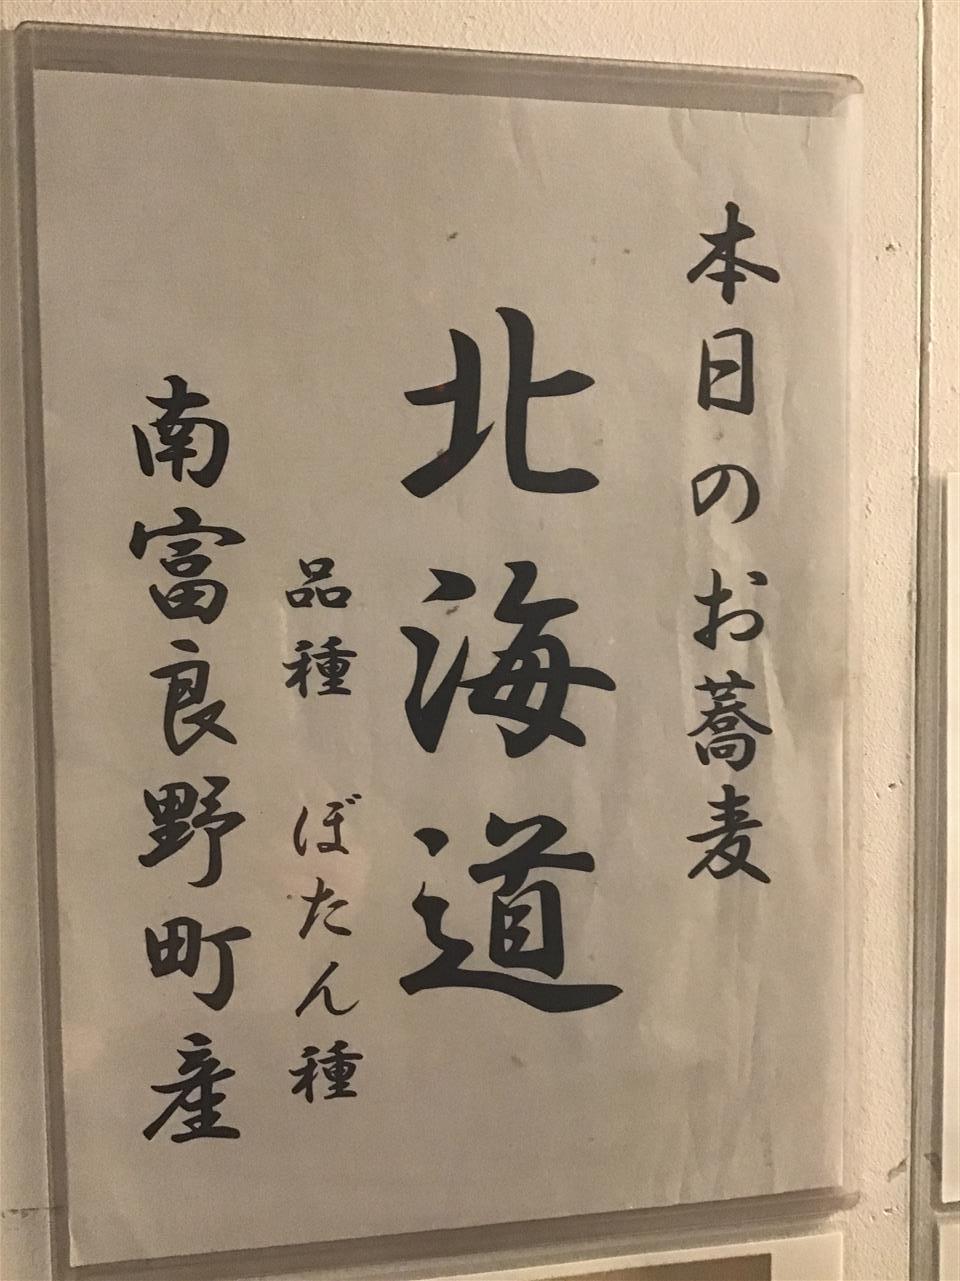 本日のお蕎麦
北海道
品種 ぼたん種
南富良野町産